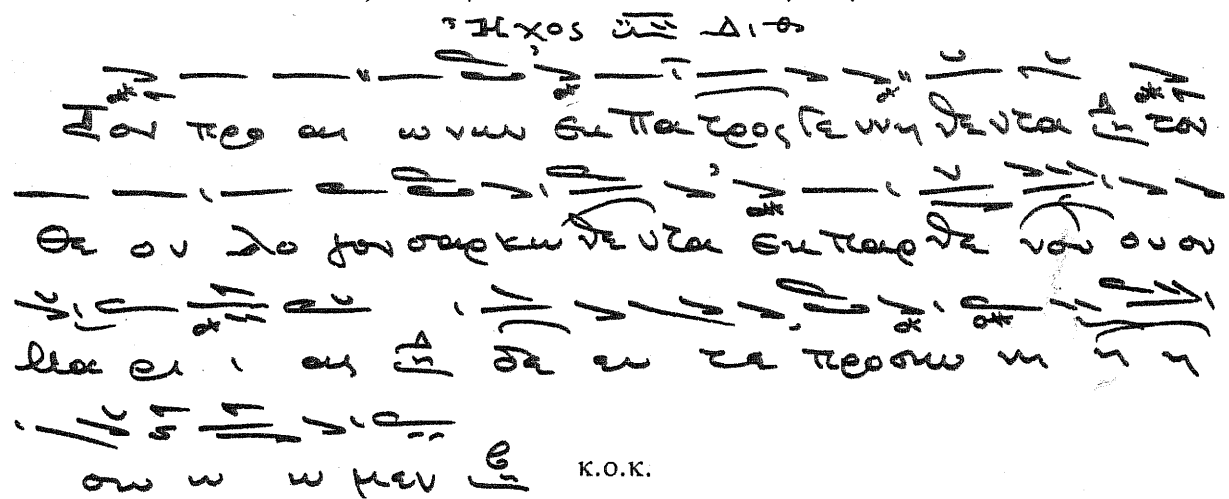 Ἦχος Δι
Τον προ αι ω νων εκ Πα τρος Γε ννη θε ντα Δ τον
Θε ο ν λο γον σαρ κω θε ντα εκ παρ θε νου ου ου
Μα ρι ι ας Δ δε ευ τε προσκυ νη η η
σω ω ω μεν κ.ο.κ.